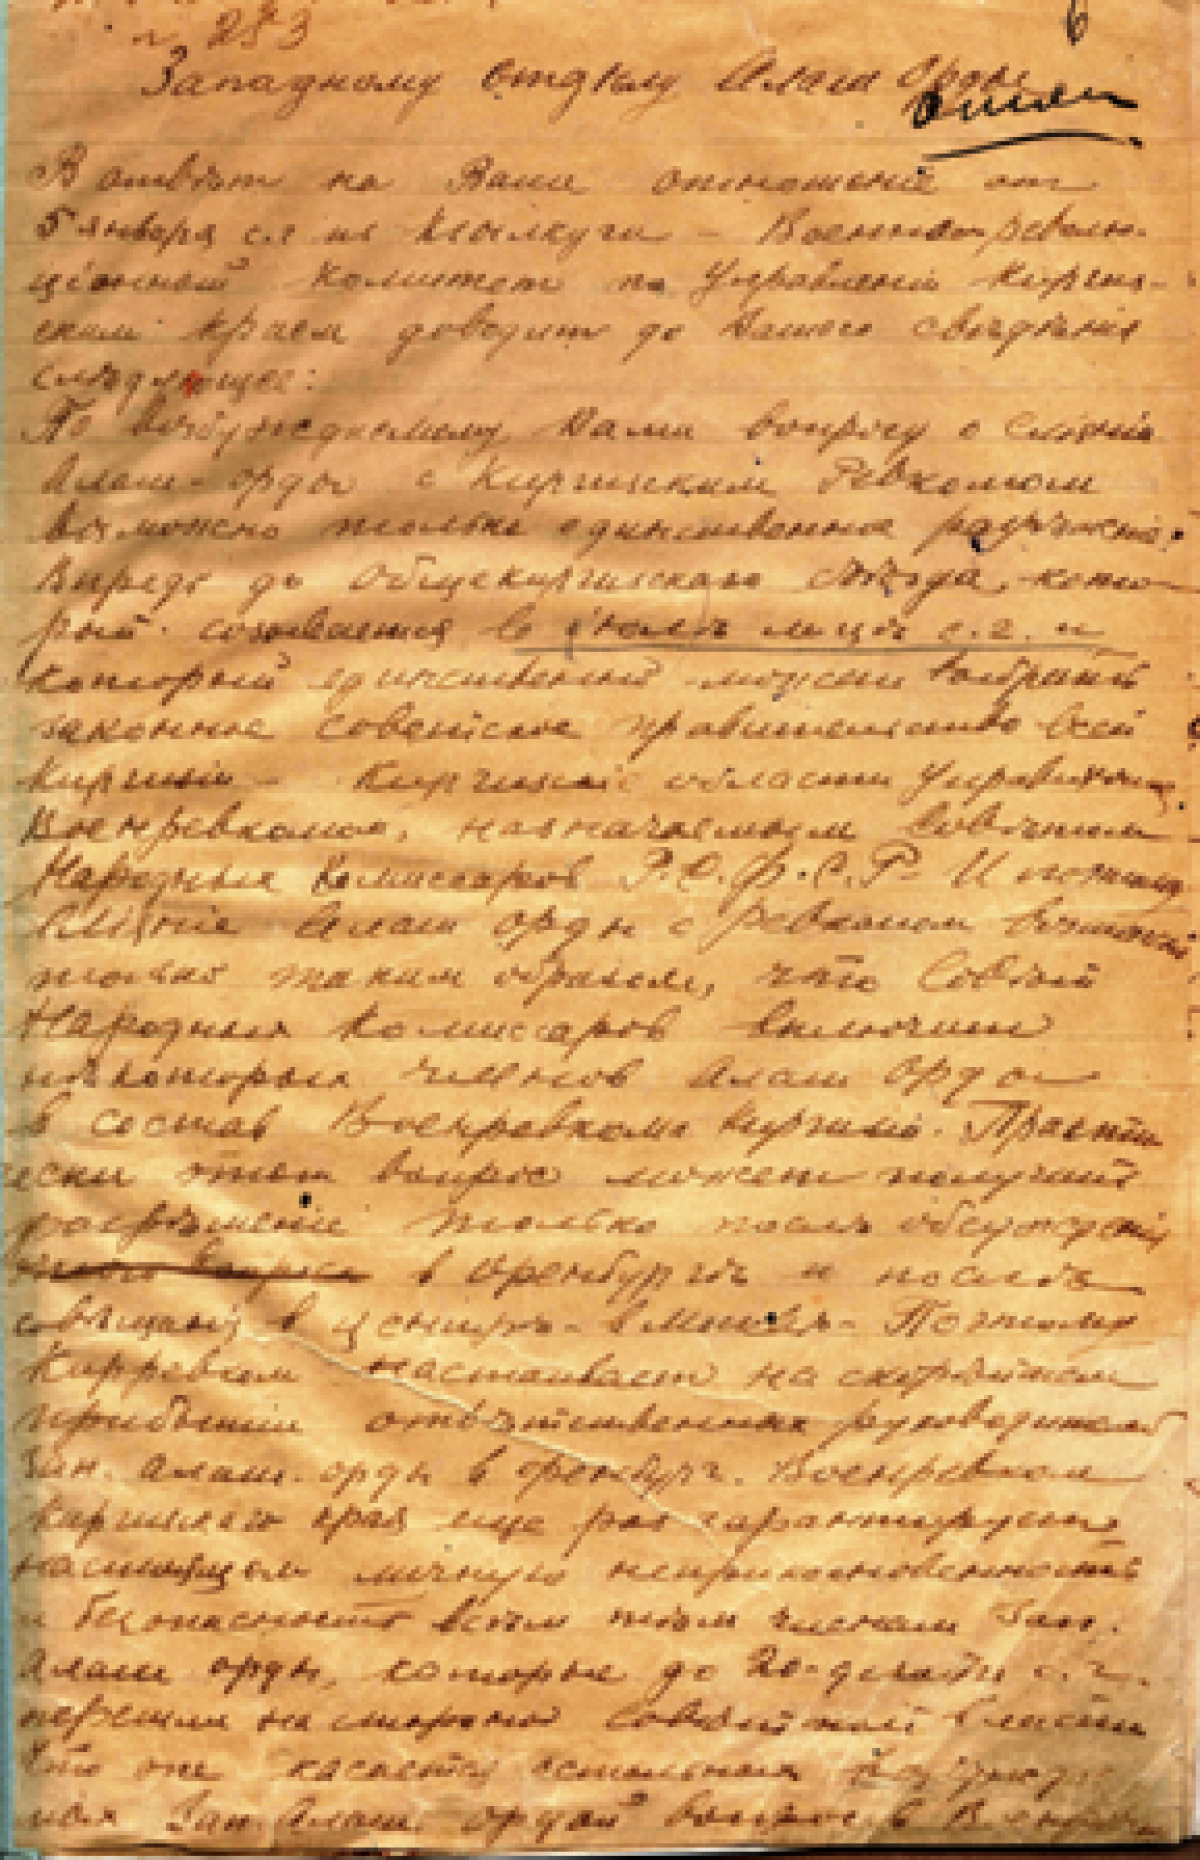 № 253
6
Западному отдѣлу Алаш Орды
В отвѣт на Ваше отношеніе от
5 января с.г. из Кзылкуги – Военно-револю-
ціонный Комитет по Управленію Киргиз-
ским Краем доводит до Вашего свѣдѣнія
слѣдующее:
По возбужденному Вами вопросу о слияніи
Алаш-орды с Киргизским Ревкомом
возможно только единственное разрѣшеніе:
Впредь до Общекиргизского Съѣзда, кото-
рый созывается в іюнѣ м-цѣ с.г. и
который единственный может выбрать
законное советское правительство всей
Киргизіи – Киргизскіе области управляются
Военревкомом, назначаемым Совѣтом
Народных Комиссаров Р.С.Ф.С.Р. И потому
слияніе Алаш Орды с Ревкомом возможно
только таким образом, что Совѣт
Народных Комиссаров включит
нѣкоторых членов Алаш Орды
в состав Военревкома Киргизіи. Практи-
чески этот вопрос может получить
разрѣшеніе только послѣ обсужденія
этого вопроса в Оренбургѣ и послѣ
совѣщанія в центрѣ – в Москвѣ – Поэтому
Кирревком настаивает на скорѣйшем
прибытіи отвѣтственных руководителей
Зап. Алаш. орды в Оренбург. Военревком
Киргизского края еще раз гарантирует
настоящим личную неприкосновенность
и безопасность всѣм тѣм членам Зап.
Алаш орды, которые до 20-
перешли на сторону Совѣтской власти
Что же касается остальных
Зап. Алаш. ордой вопросов